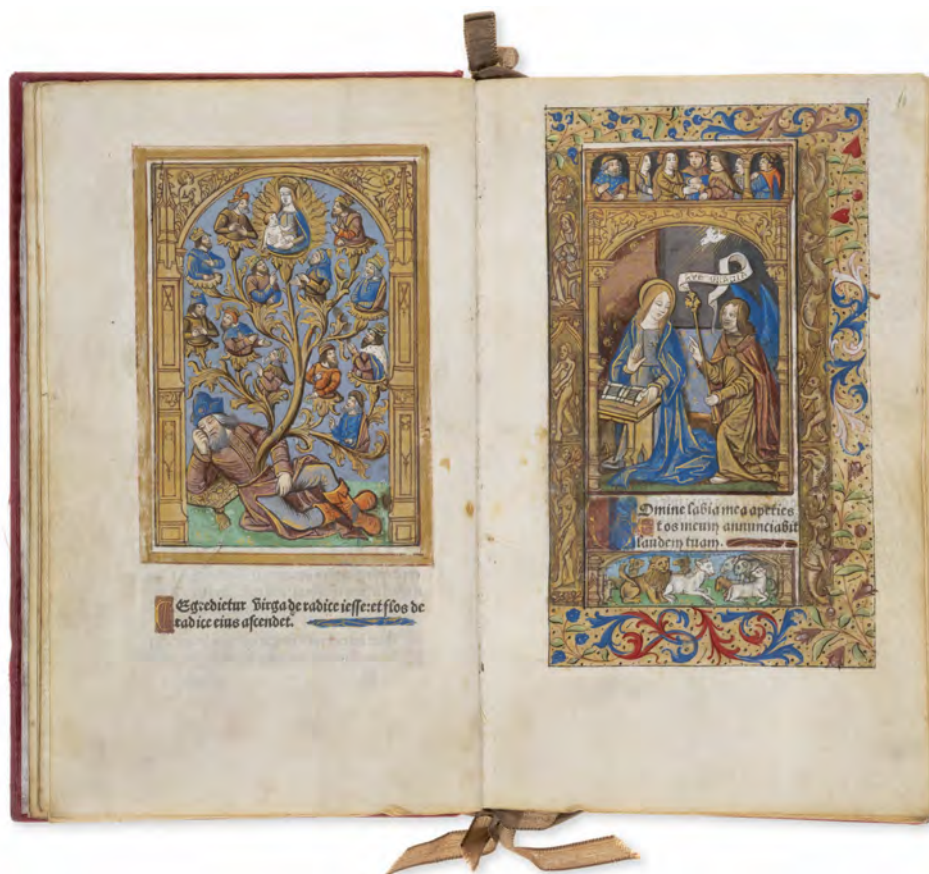 Egredietur Virga de radice iesse: et flos de
radice eius ascendet.
AVE GRACIA
Domine labia mea aperies
Et os meum annunciabit
laudem tuam.